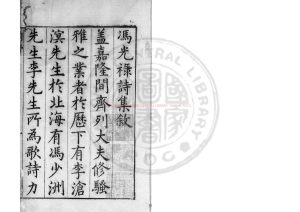 馮光祿詩集敘
蓋嘉隆間齊列大夫修騷
雅之業者於歷下有李滄
溟先生於北海有馮少洲
先生李先生所為歌詩力